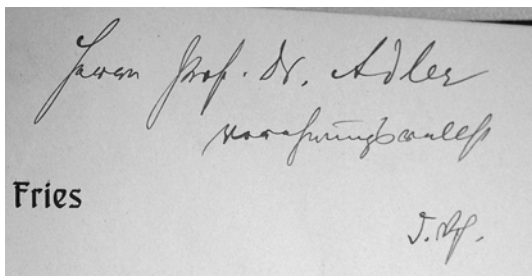 Herrn Prof. Dr. Adler
verehrungsvollst
Fries
d. Vf.